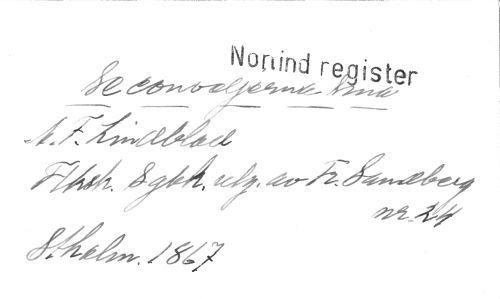 Nonind register
Se convaljerna små
A. F. Lindblad
Flksk. Sgbk. utg. av Fr. Sandberg
nr. 24
Stholm. 1867